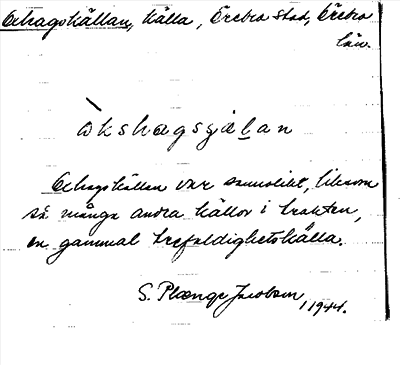 Oxhagskällan, källa, Örebro stad, Örebro
län.
òkshagsχälan
Oxhagskällan var sannolikt, liksom
så många andra källor i trakten,
en gammal trefaldighetskälla.
S. Plænge Jacobson, 1944.